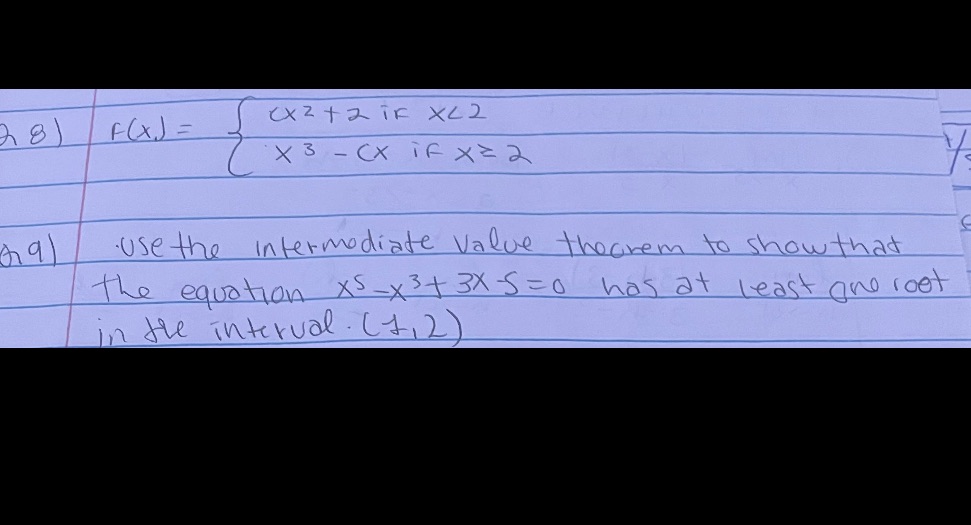 28) F(x) = { cx² + 2 if x < 2
x³ - cx if x ≥ 2
29) use the intermediate value theorem to show that
the equation x⁵ - x³ + 3x - 5 = 0 has at least one root
in the interval. (1,2)